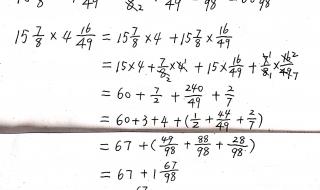 15 7/8 × 4 16/49 = 15 7/8 × 4 + 15 7/8 × 16/49
= 15 × 4 + 7/8 × 4 + 15 × 16/49 + 7/8 × 16/49
= 60 + 7/2 + 240/49 + 2/7
= 60 + 3 + 4 + (1/2 + 44/49 + 2/7)
= 67 + (49/98 + 88/98 + 28/98)
= 67 + 1 67/98